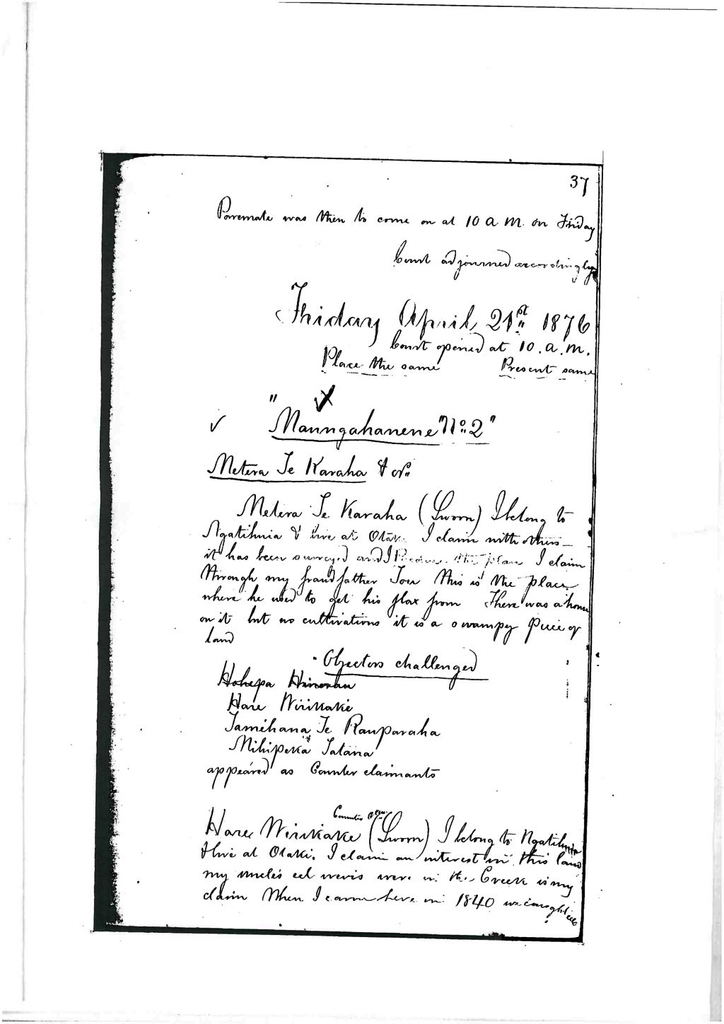 37
Poremate was then to come on at 10 a m. on Friday
Court adjourned accordingly
Friday April 21st 1876
Court opened at 10. a. m.
Place the same Present same
"Maungahanene" No 2"
Metera Te Karaha & ors
Metera Te Karaha (Sworn) I belong to
Ngatihuia & live at Otaki. I claim with others—
it has been surveyed and I Produce the plan I claim
through my grandfather Tou this is the place
where he used to get his flax from There was a house
on it but no cultivations it is a swampy Piece of
land
Objectors challenged
Hohepa
Hare Wirikake
Tamihana Te Rauparaha
Mihipeka Tatana
appeared as Counter claimants
Hare Wirikake (Sworn) I belong to Ngatihuia
& live at Otaki. I claim an interest in this land
my uncles eel weirs were in the Creek is my
claim When I came here in 1840 we caught eels